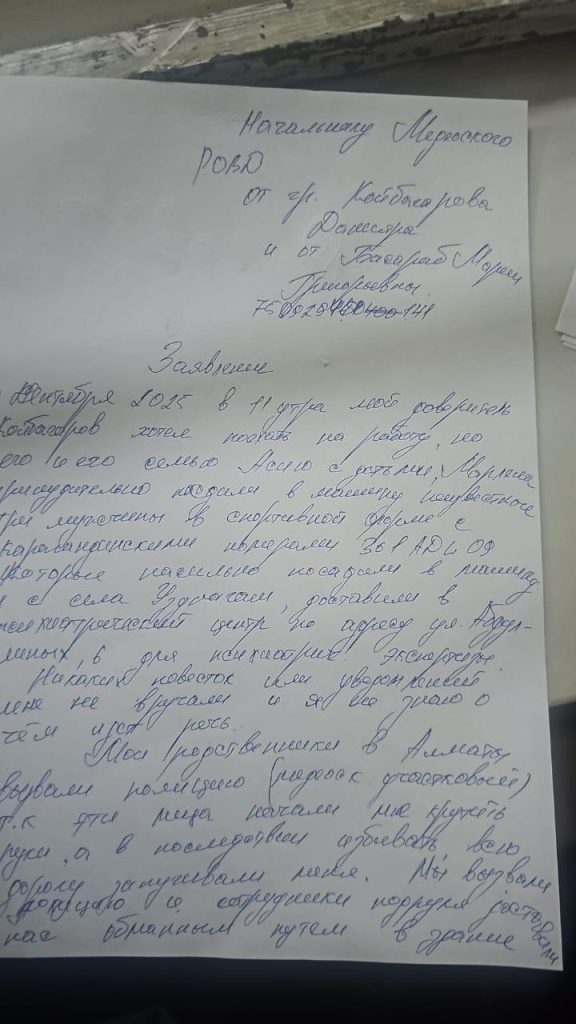 Начальнику Медеоского
РОВД
от гр. Койбагарова
Данияра
и от Басараб Марии
Григорьевны
Заявление
Сентября 2025 в 11 утра мой доверитель
Койбагаров хотел поехать на работу, но
его и его семью Асию с детьми,
принудительно посадили в машину неизвестные
три мужчины в спортивной форме с
Карагандинскими номерами 361 ADL 09
которые насильно посадили в машину
и с села доставили в
психиатрический центр по адресу ул. Абдул-
линых, 6 для психиатрич. экспертизы.
Никаких повесток или уведомлений
мне не вручали и я не знаю о
чём идёт речь.
Мои родственники в Алматы
вызвали полицию (медеоск. участковый)
т.к эти лица начали мне крутить
руки, а в последствии избивать всю
дорогу запугивали меня. Мы вызвали
полицию и сотрудники доставили
нас обманным путем в здание